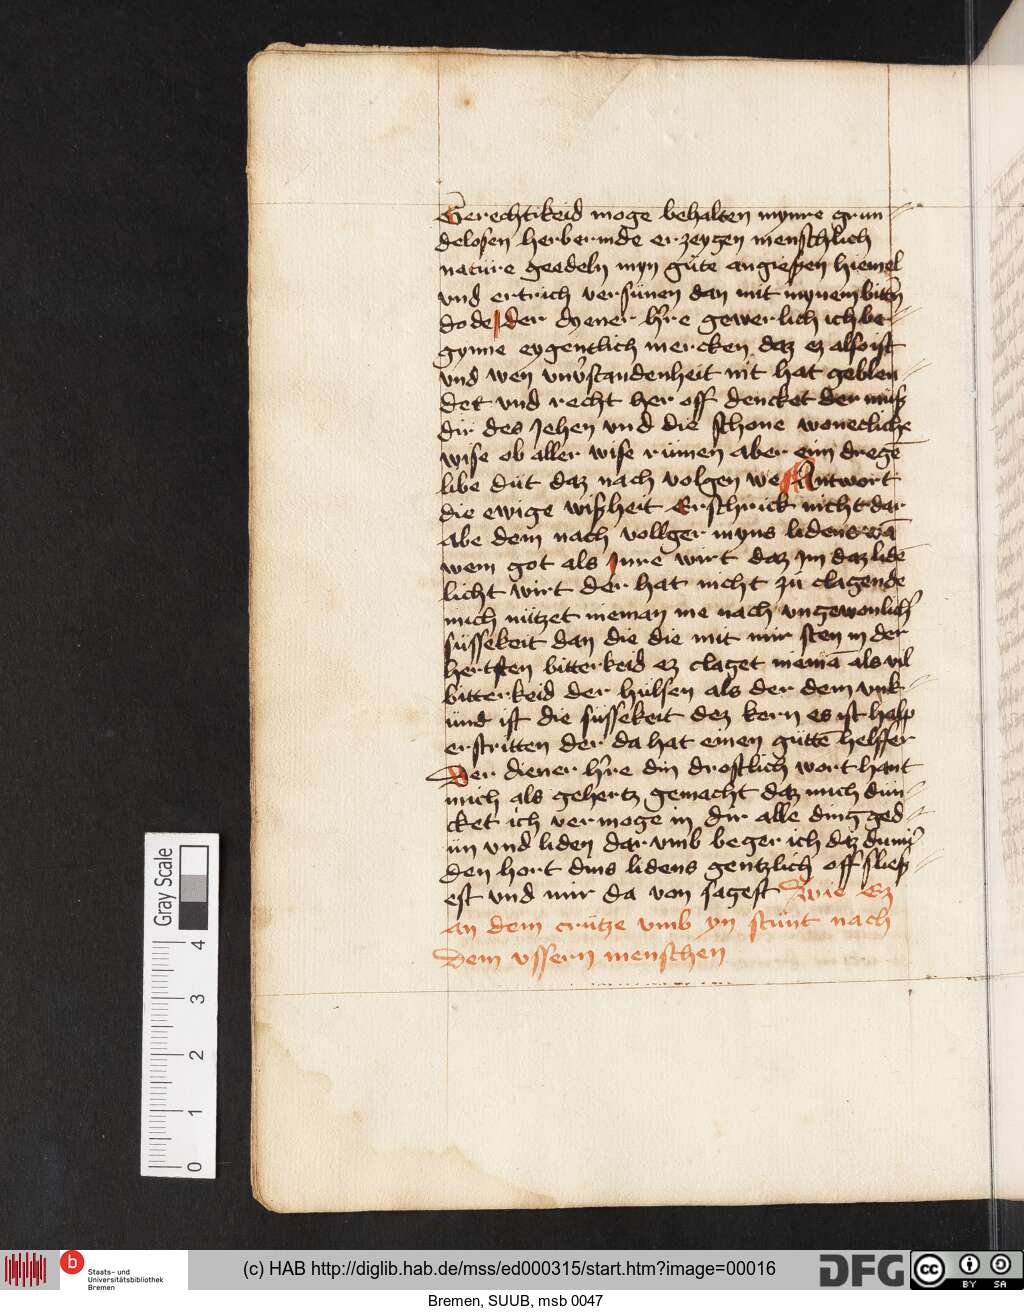 Gerechtikeid moge behalten mynre grun
delosen herbermde erzeygen menschlich
nature geedeln myn güte angießen hiemel
vnd ertrich versünen dan mit mynem bittn̄
dode der dyener h're gewerlich ich be
gynne eygentlich mercken daz ez also ist
vnd wen vnv'standenheit nit hat geblen
det vnd recht her off dencket der müß
dir des Jehen vnd die schone wonecliche
wise ob aller wise rümen aber eim dregē
libe düt daz nach volgen we Antwort
die ewige wißheit Erschrick nicht dar
abe dem nach vollger myns lidens wā
wem got als Jnre wirt daz Jm daz lidē
licht wirt der hat nicht zü clagende
mich nützet nieman me nach vngewonlich'
süssekeit dan die die mit mir sten in der
hertsten bitterkeid ez claget niemā als vil
bitterkeid der hülsen als der dem vnk
ünd ist die süssekeit dez kern es ist halp
erstritten der da hat einen güttē helffer
Der diener h're din drostlich wort hant
mich als gehertz gemacht daz mich dün
cket ich vermoge in dir alle ding ged
ün vnd liden dar vmb beger ich daz du mir
den hort dins lidens gentzlich off sließ
est vnd mir da von sagest Wie Ez
an dem crütze vmb yn stünt nach
Dem vssern menschen
Gray Scale
4
3
2
1
0
b
Staats- und
Universitätsbibliothek
Bremen
(c) HAB http://diglib.hab.de/mss/ed000315/start.htm?image=00016
DFG
cc
BY SA
Bremen, SUUB, msb 0047